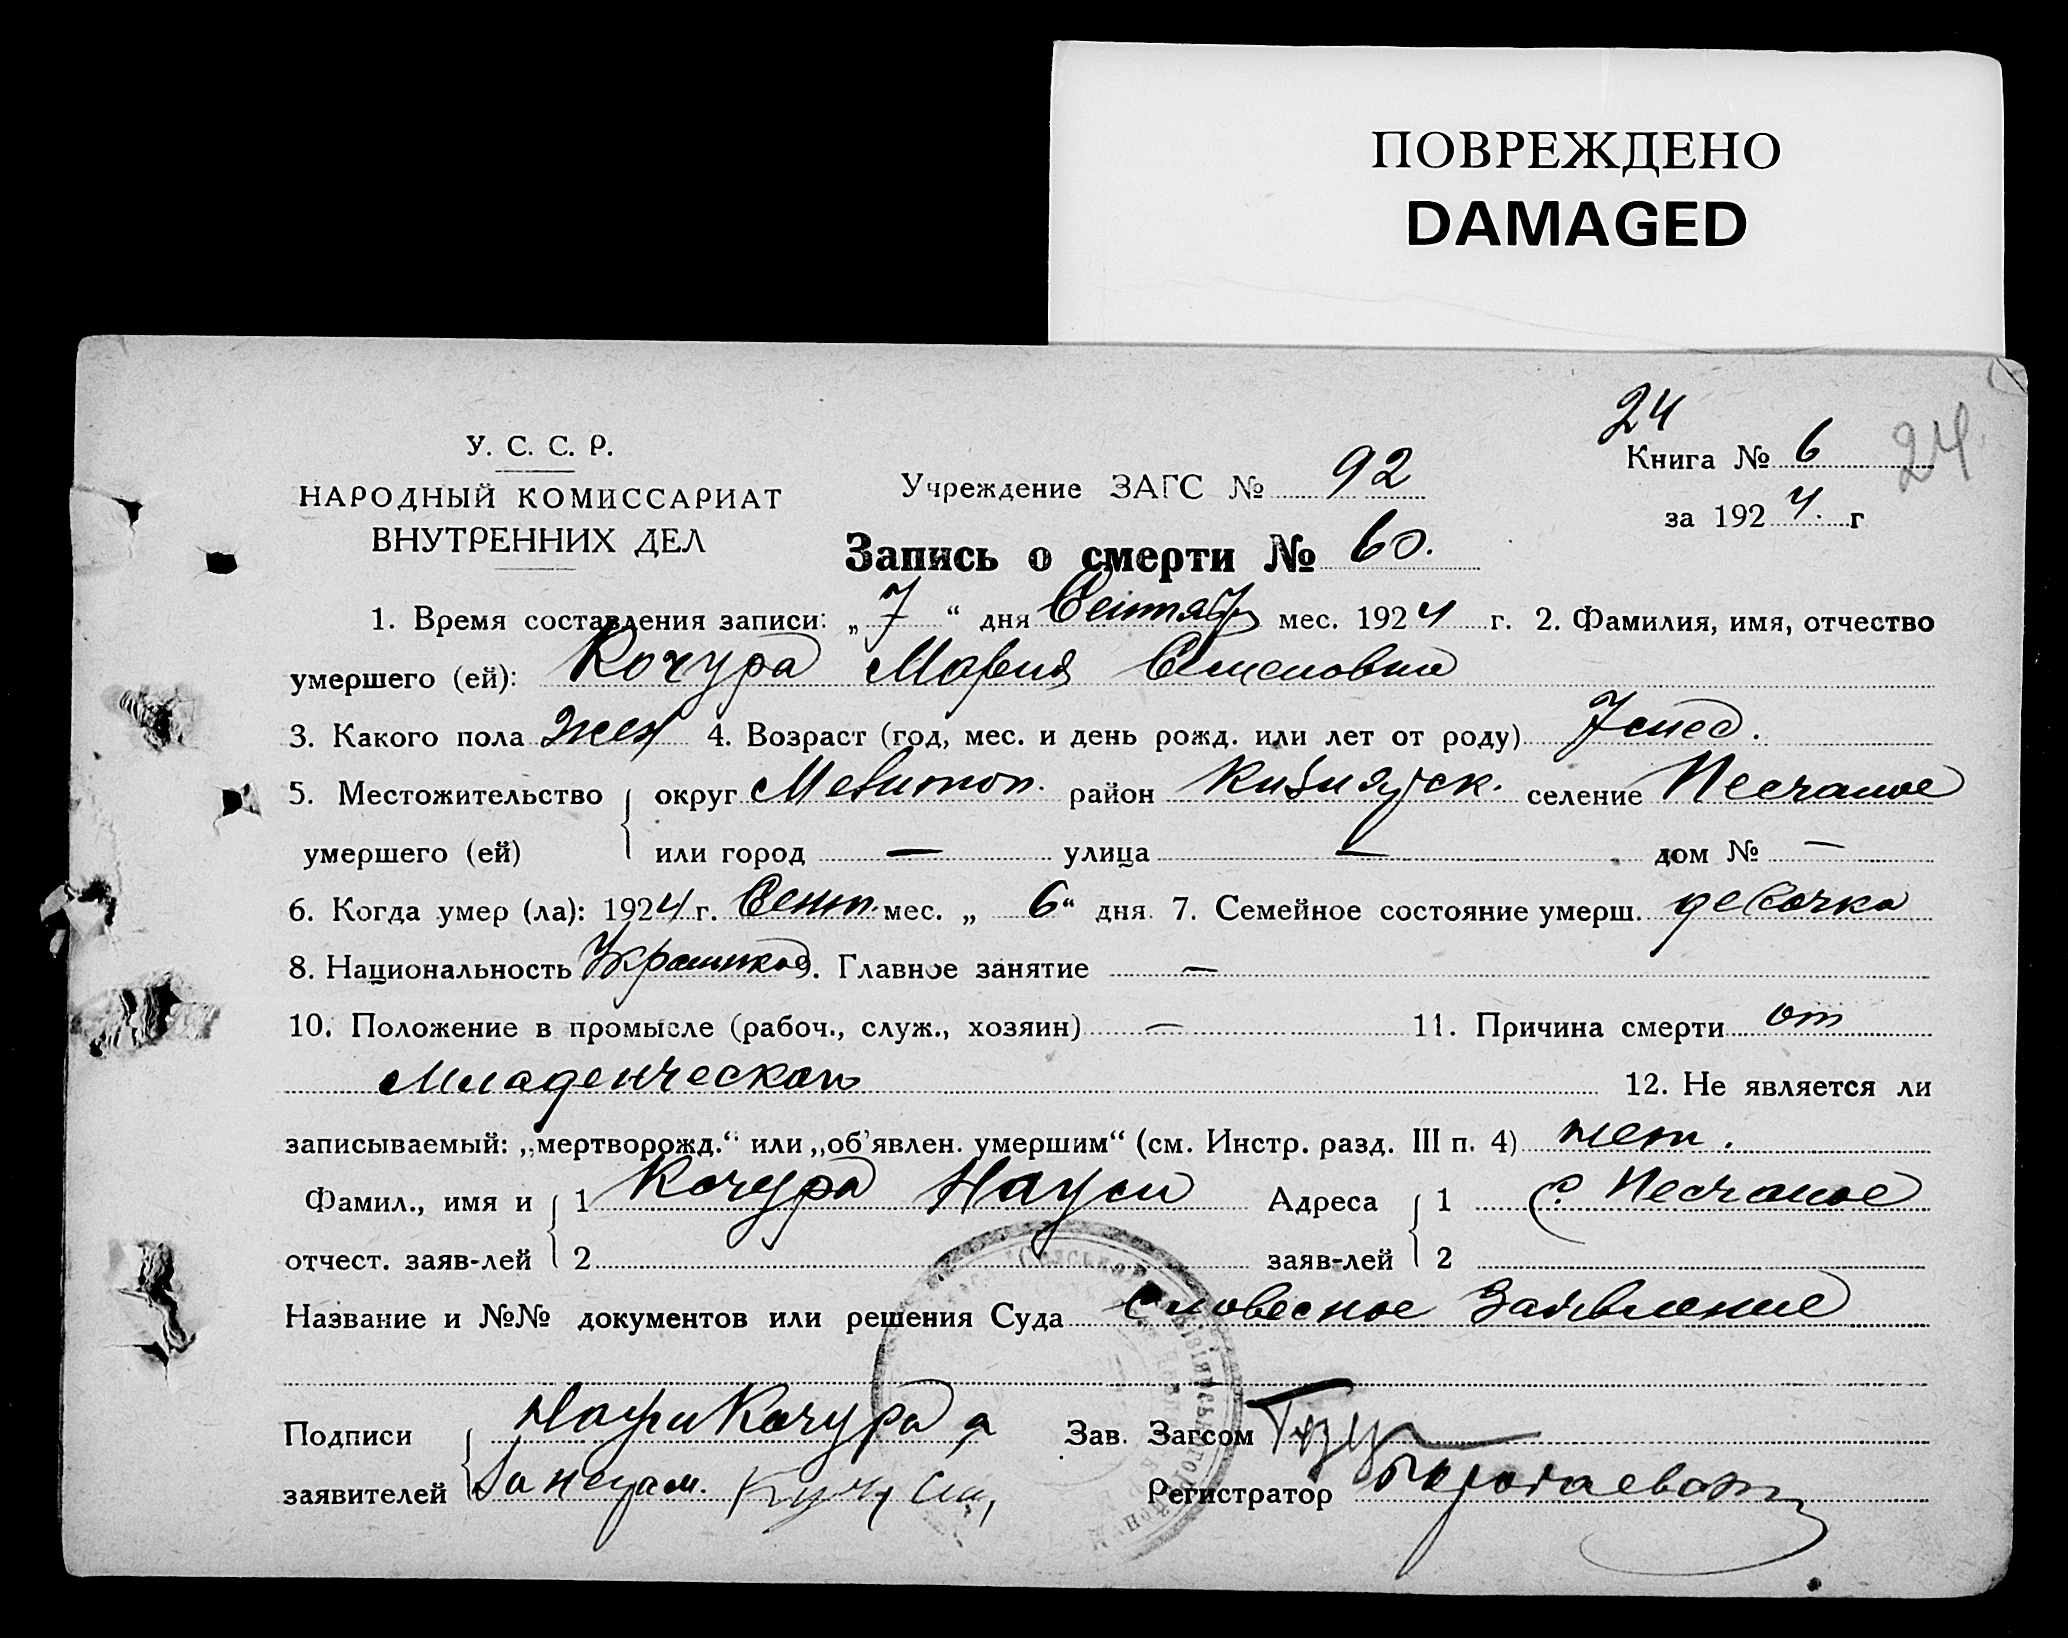 ПОВРЕЖДЕНО
DAMAGED
24
У. С. С. Р.
Книга № 6
24
НАРОДНЫЙ КОМИССАРИАТ
Учреждение ЗАГС № 92
за 1924. г
ВНУТРЕННИХ ДЕЛ
Запись о смерти № 60.
1. Время составления записи: „7“ дня Сентяб мес. 1924 г. 2. Фамилия, имя, отчество
умершего (ей): Кочура Мария Семеновна
3. Какого пола жен 4. Возраст (год, мес. и день рожд. или лет от роду) 7 мес.
5. Местожительство округ Мелитоп. район селение Песчаное
умершего (ей) или город — улица — дом № —
6. Когда умер (ла): 1924 г. Сент. мес. „6“ дня. 7. Семейное состояние умерш. девочка
8. Национальность 9. Главное занятие —
10. Положение в промысле (рабоч., служ., хозяин) — 11. Причина смерти от
Младенческой 12. Не является ли
записываемый: „мертворожд.“ или „об’явлен. умершим“ (см. Инстр. разд. III п. 4) нет.
Фамил., имя и 1 Кочура Адреса 1 с. Песчаное
отчест. заяв-лей 2 заяв-лей 2
Название и №№ документов или решения Суда Словесное Заявление
Подписи Кочура Зав. Загсом
заявителей Регистратор